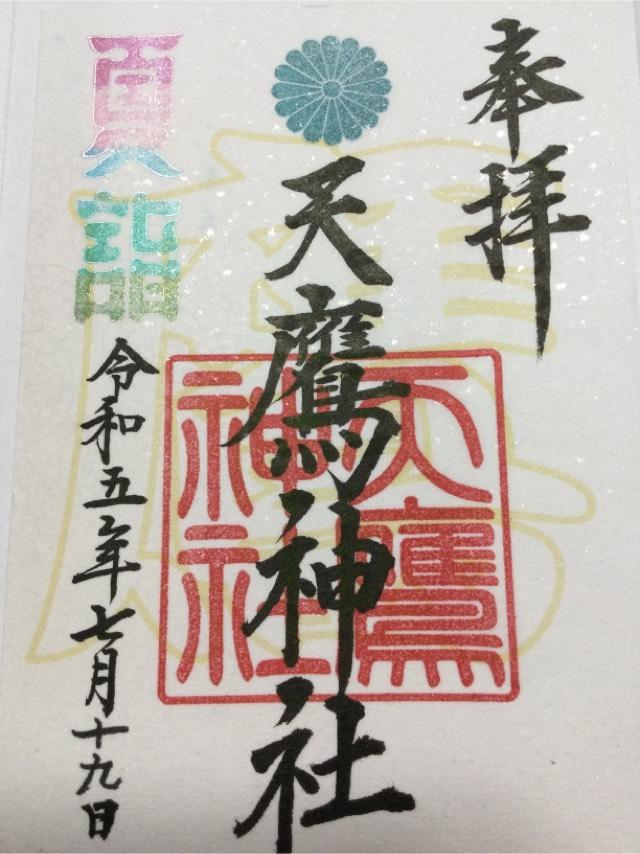 奉拝
天鷹神社
天鷹神社
夏詣
令和五年七月十九日